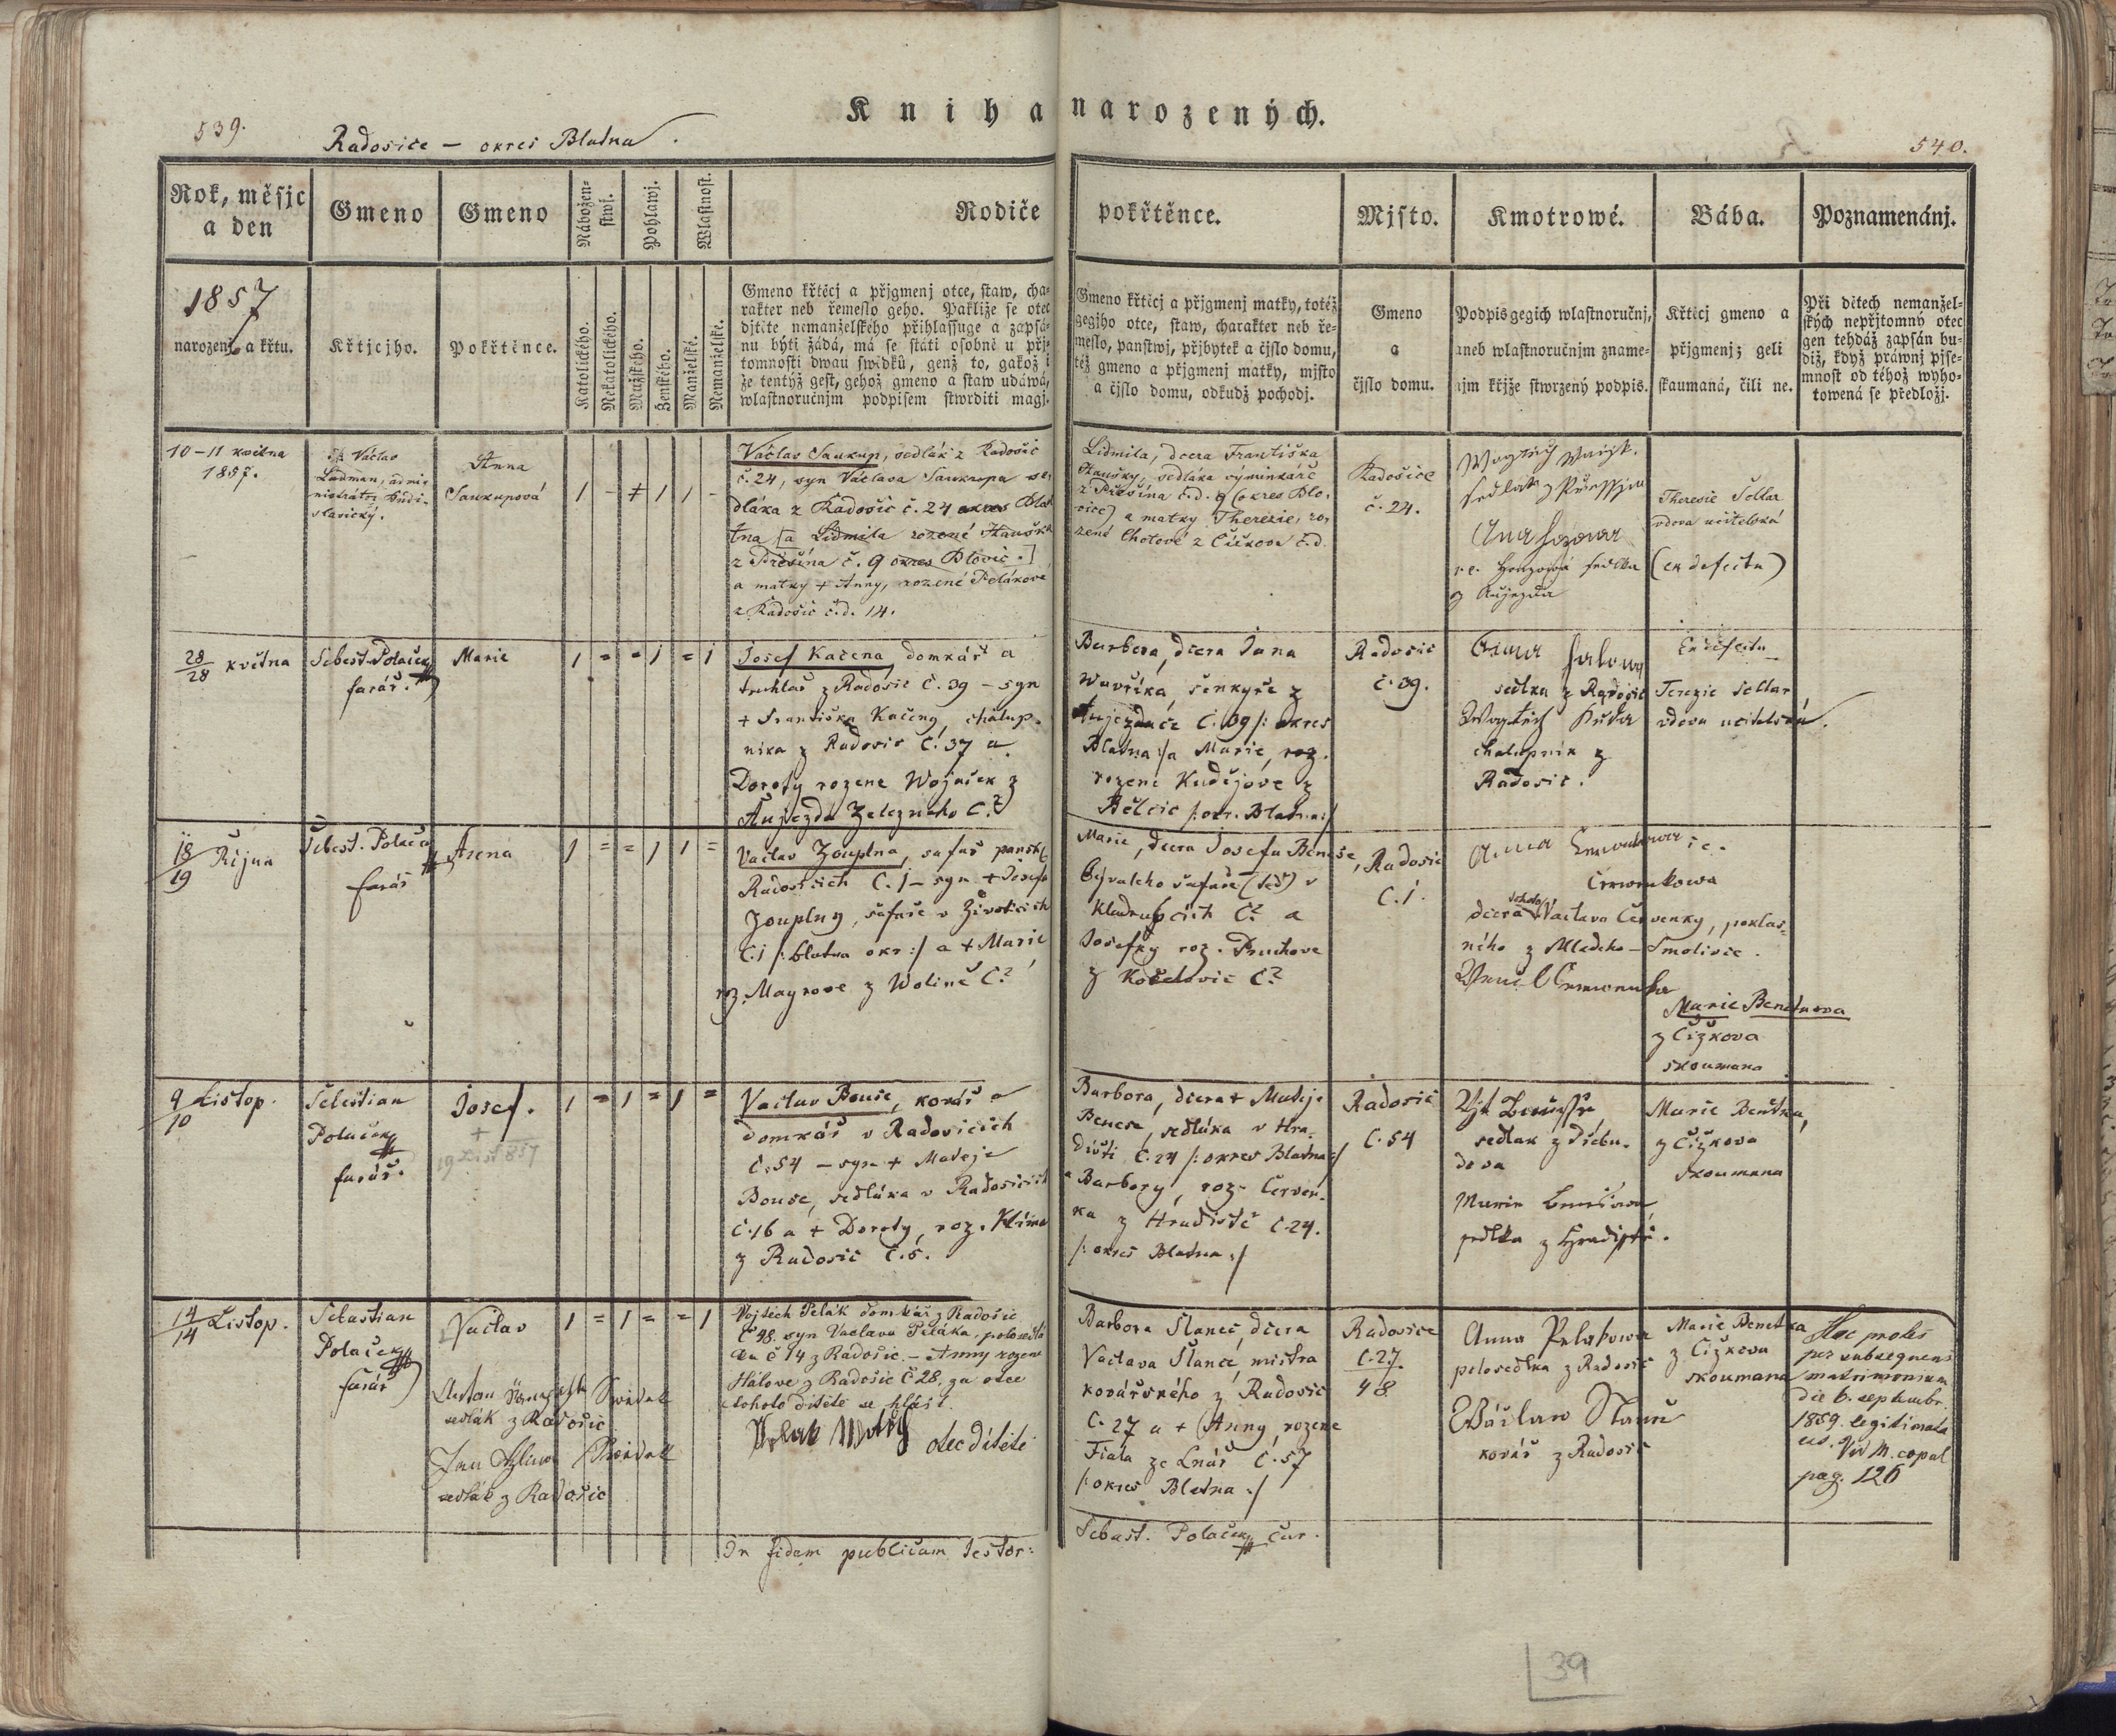 Kniha narozených.
539.
Radosice — okres Blatna.
540.
Rok, měsjc
a den
Gmeno
Gmeno
Nábožen-
stwj.
Pohlawj.
Wlastnost.
Rodiče
pokřtěnce.
Mjsto.
Kmotrowé.
Bába.
Poznamenánj.
1857
narození a křtu.
Křtjcjho.
Pokřtěnce.
Katolického.
Nekatolického.
Mužského.
Ženského.
Manželské.
Nemanželské.
Gmeno křtěcj a přjgmenj otce, staw, cha-
rakter neb řemeslo geho. Pakliže se otec
djtěte nemanželského přihlassuge a zapsá-
nu býti žádá, má se státi osobně u přj-
tomnosti dwau swědků, genž to, gakož i
že tentýž gest, gehož gmeno a staw udáwá,
wlastnoručnjm podpisem stwrditi magj.
Gmeno křtěcj a přjgmenj matky, totéž
gegjho otce, staw, charakter neb ře-
meslo, panstwj, přjbytek a čjslo domu,
též gmeno a přjgmenj matky, mjsto
a čjslo domu, odkudž pocházj.
Gmeno
a
čjslo domu.
Podpis gegich wlastnoručnj,
aneb wlastnoručnjm zname-
njm křjže stwrzený podpis.
Křtěcj gmeno a
přjgmenj; geli
skaumaná, čili ne.
Při dětech nemanžel-
ských nepřjtomný otec
gen tehdáž zapsán bu-
diž, když práwnj pjse-
mnost od téhož wyho-
towená se předložj.
10–11 května
1857.
Václav
Ladman, admi-
nistrátor
Anna
Saukupová
1 - + 1 1 -
Václav Saukup, sedlák z Radošic
č. 24, syn Václava Saukupa se-
dláka z Radošic č. 24 okres Blat
tna [a Lidmila rozené Hauška
z Přešína č. 9 okres Blovic.]
a matky + Anny, rozené Pelákové
z Radošic č.d. 14.
Lidmila, dcera Františka
Haušky, sedláka výminkáře
z Přešína č.d. 9 (okres Blo-
vice) a matky Therezie, ro-
zené Chotové z Čížkova č.d.
Radošice
č. 24.
Therezie Sellar
vdova učitelská
(ex defectu)
28
28 května
Sebest. Polaček
farář.
Marie
1 = = 1 = 1
Josef Kačena domkář a
truhlář z Radosic č. 39 – syn
+ Františka Kačeny, chalup-
nika z Radosic č. 37 a
Doroty rozene Wojaček z
Aujezda Zelezneho č.?
Barbora, dcera Jana
Wavřika, šenkyře z
Aujezdce č. 39 /: okres
Blatna :/ a Marie, roz.
rozene Kudějove z
Bělcic /: okr. Blatna :/
Radosic
č. 39.
sedlka z Radosic
chalupnik z
Radosic.
Ex defectu
Terezie Sellar
vdova učitelská.
18
19 Října
Šebest. Polaček
farář
Anna
1 = = 1 1 =
Vaclav Zouplna, šafář panský
Radosicich č. 1 – syn + Josefa
Zouplny, šafaře v Životicich
č. 1 /: blatna okr :/ a + Marie
roz. Mayrove z Wolině č.?
Marie, dcera Josefa Beneše,
bývalcho šafaře (teď) v
Kladrubcich č.? a
Josefky roz. Pruchove
z Košelovic č.?
Radosic
č. 1.
Anna
Červenkowa
dcera Václava Červenky, poklas-
ného z Mladeho-Smolivce.
Marie Benetkova
z Čižkova
skoumana
9
10 Listop.
Šebestian
Polaček
farář.
Josef.
+
19 List 857
1 = 1 = 1 =
Vaclav Bouše, kovář a
domkář v Radosicich
č. 54 – syn + Mateje
Bouše, sedláka v Radosicich
č. 16 a + Doroty, roz. Klíma
z Radosic č. 5.
Barbora, dcera + Mateje
Beneše, sedláka v Hra-
dišti č. 24 /: okres Blatna :/
a Barbory, roz. Červen-
ka z Hradiště č. 24.
/: okres Blatna :/
Radosic
č. 54
sedlak z Třebu-
dova
sedlka z Hradiště.
Marie Benetka,
z Čižkova
skoumana
14
14 Listop.
Sebastian
Polaček
farář
Vaclav
1 = 1 = = 1
Vojtěch Pelák domkář z Radošic
č 48. syn Vaclava Peláka, polosedlá
ka č 14 z Radošic. – Anny rozene
Hálove z Radošic č 28, za otce
tohoto dítěte se hlásí.
otec dítěte
sedlák z Radošic
sedlák z Radošic
Barbora Slanec, dcera
Vaclava Slance, mistra
kovářského z Radosic
č. 27 a + (Anny, rozene
Fiala ze Lnář č. 57
/: okres Blatna :/
Radosice
č. 27.
48
Anna Pelakowa
polosedlka z Radosic
kovář z Radosic
Marie Benetka
z Čižkova
skoumana
Hoc proles
per subsequens
matrimonium
die 6. septembr.
1859. legitimata
est. Vid M. copul
pag. 126
In fidem publicam testor:
Sebast. Polaček cur.
39